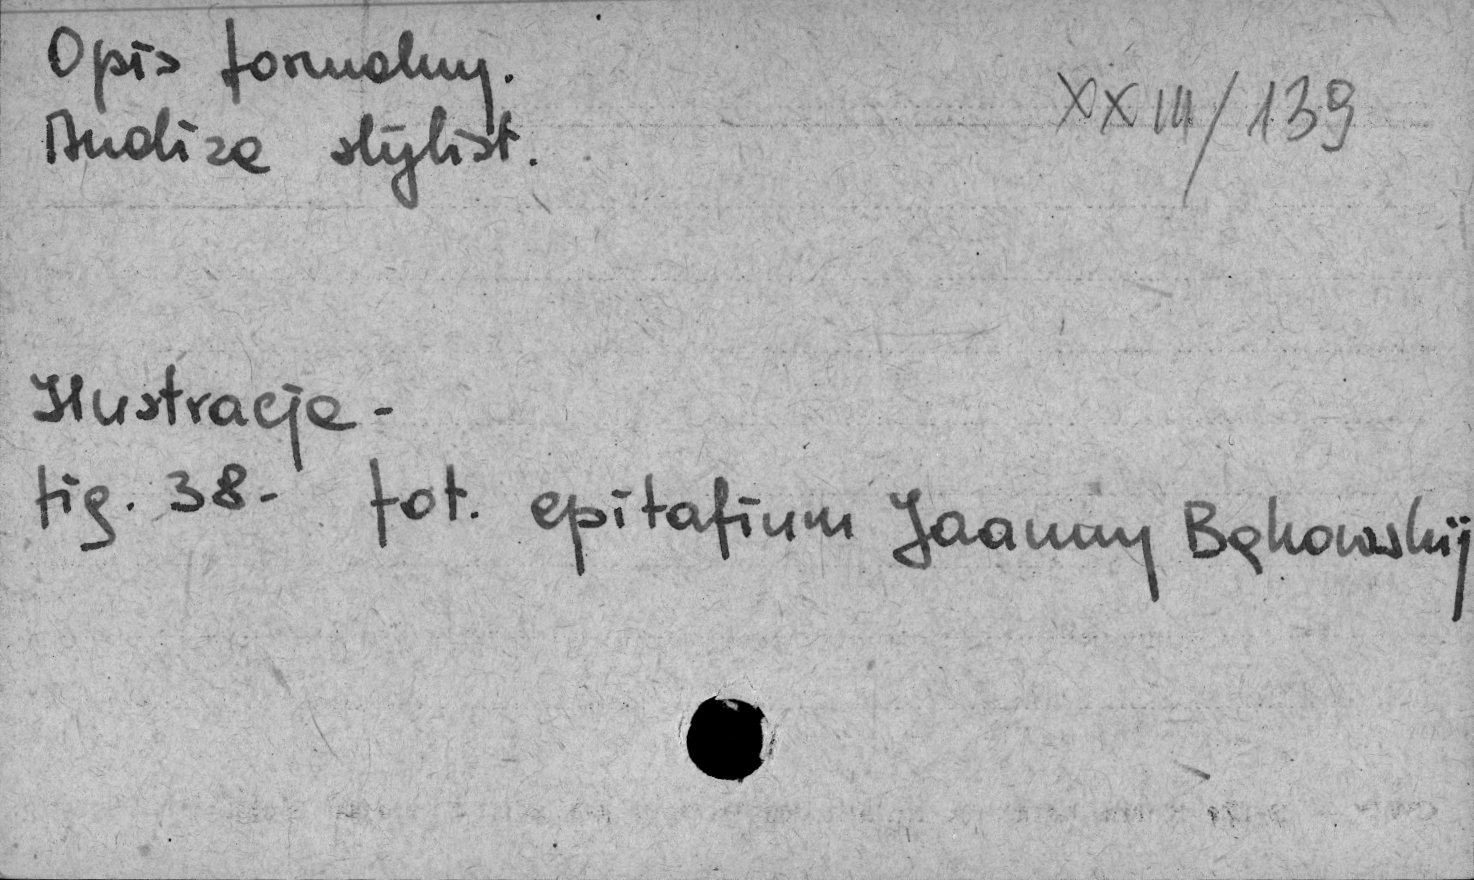 Opis formalny.
XXIII/139
Analiza stylist.
Ilustracje -
fig. 38 - fot. epitafium Jaanny Bąkowskij